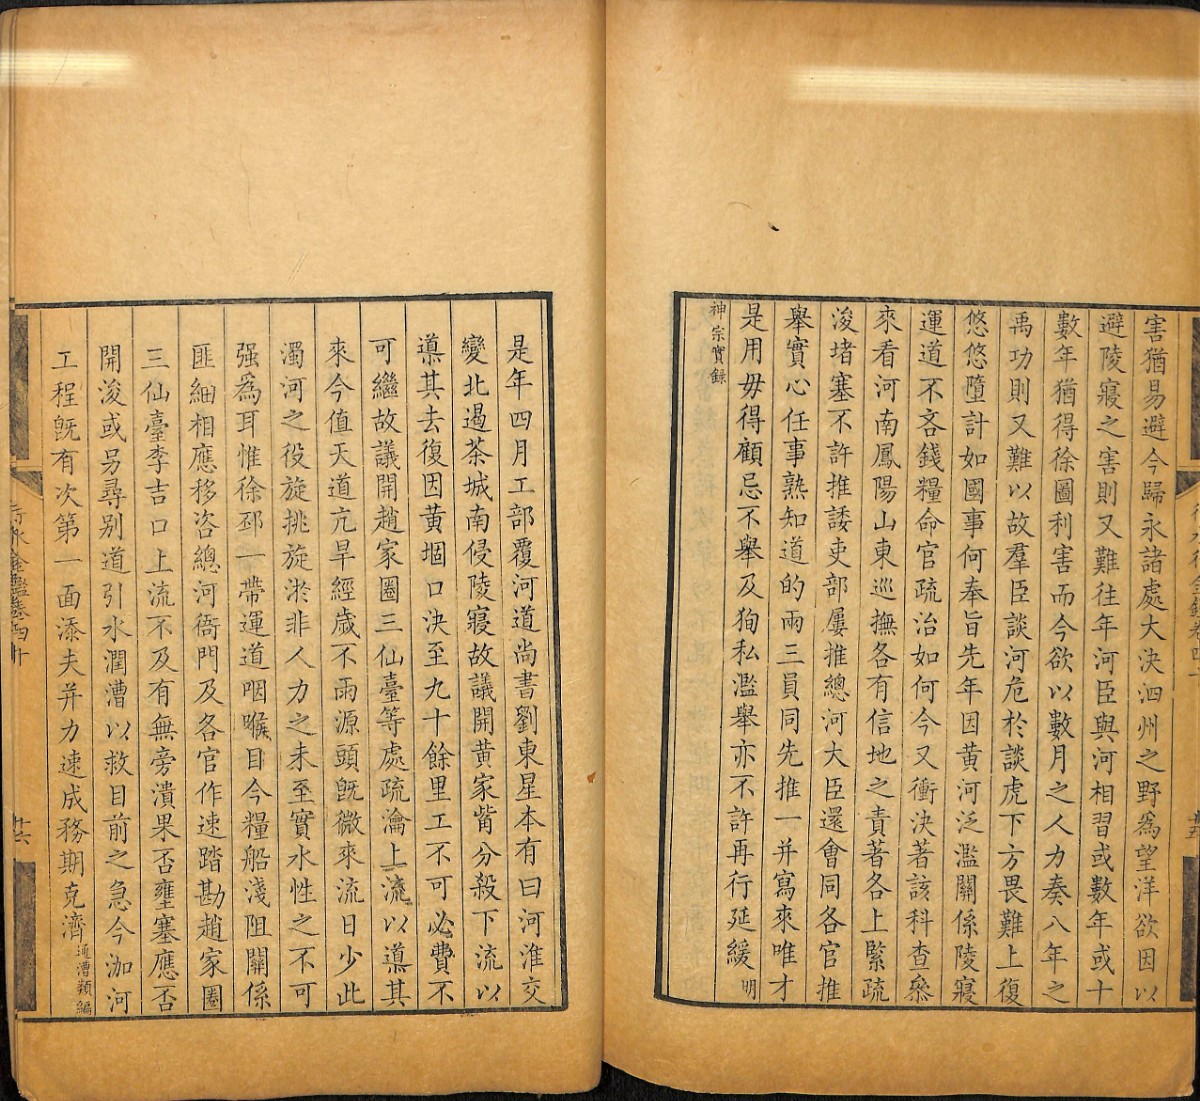 害猶易避今歸永諸處大決泗州之野為望洋欲因以
避陵寢之害則又難往年河臣與河相習或數年或十
數年猶得徐圖利害而今欲以數月之人力奏八年之
禹功則又難以故羣臣談河危於談虎下方畏難上復
悠悠墮計如國事何奉旨先年因黃河泛濫關係陵寢
運道不吝錢糧命官疏治如何今又衝決著該科查叅
來看河南鳳陽山東巡撫各有信地之責著各上緊疏
浚堵塞不許推諉吏部屢推總河大臣還會同各官推
舉實心任事熟知道的兩三員同先推一并寫來唯才
是用毋得顧忌不舉及狥私濫舉亦不許再行延緩明
神宗實錄
是年四月工部覆河道尚書劉東星本有曰河淮交
變北過茶城南侵陵寢故議開黃家嘴分殺下流以
導其去復因黃堌口決至九十餘里工不可必費不
可繼故議開趙家圈三仙臺等處疏瀹上流以導其
來今值天道亢旱經歲不雨源頭既微來流日少此
濁河之役旋挑旋淤非人力之未至實水性之不可
强為耳惟徐邳一帶運道咽喉目今糧船淺阻關係
匪細相應移咨總河衙門及各官作速踏勘趙家圈
三仙臺李吉口上流不及有無旁潰果否壅塞應否
開浚或另尋別道引水潤漕以救目前之急今泇河
工程既有次第一面添夫并力速成務期克濟通漕類編
行水金鑑卷四十
十六